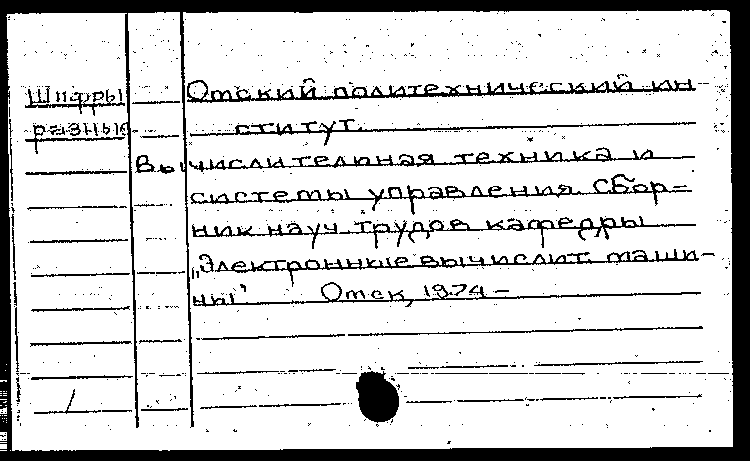 Шифры
разные
Омский политехнический ин-
ститут.
Вычислительная техника и
системы управления. Сбор=
ник науч. трудов кафедры
„Электронные вычислит. маши-
ны" Омск, 1974 –
/